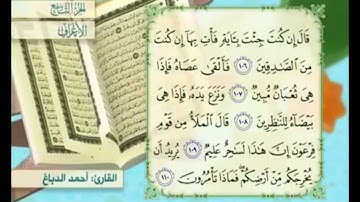 الجزء التاسع
الأعراف
قَالَ إِن كُنتَ جِئْتَ بِـَٔايَةٍ فَأْتِ بِهَآ إِن كُنتَ
مِنَ ٱلصَّـٰدِقِينَ ١٠٦ فَأَلْقَىٰ عَصَاهُ فَإِذَا
هِىَ ثُعْبَانٌ مُّبِينٌ ١٠٧ وَنَزَعَ يَدَهُۥ فَإِذَا هِىَ
بَيْضَآءُ لِلنَّـٰظِرِينَ ١٠٨ قَالَ ٱلْمَلَأُ مِن قَوْمِ
فِرْعَوْنَ إِنَّ هَـٰذَا لَسَـٰحِرٌ عَلِيمٌ ١٠٩ يُرِيدُ أَن
يُخْرِجَكُم مِّنْ أَرْضِكُمْ ۖ فَمَاذَا تَأْمُرُونَ ١١٠
القارئ: أحمد الدباغ